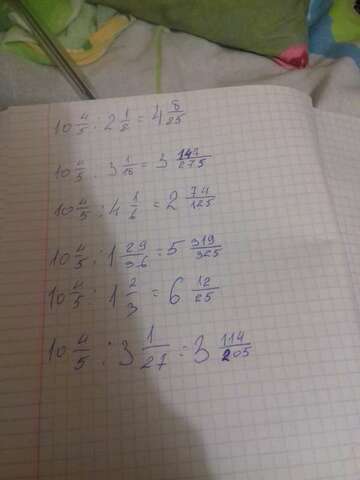 10 4/5 : 2 1/2 = 4 8/25
10 4/5 : 3 1/18 = 3 147/275
10 4/5 : 4 1/6 = 2 74/125
10 4/5 : 1 29/36 = 5 319/325
10 4/5 : 1 2/3 = 6 12/25
10 4/5 : 3 1/27 = 3 114/205